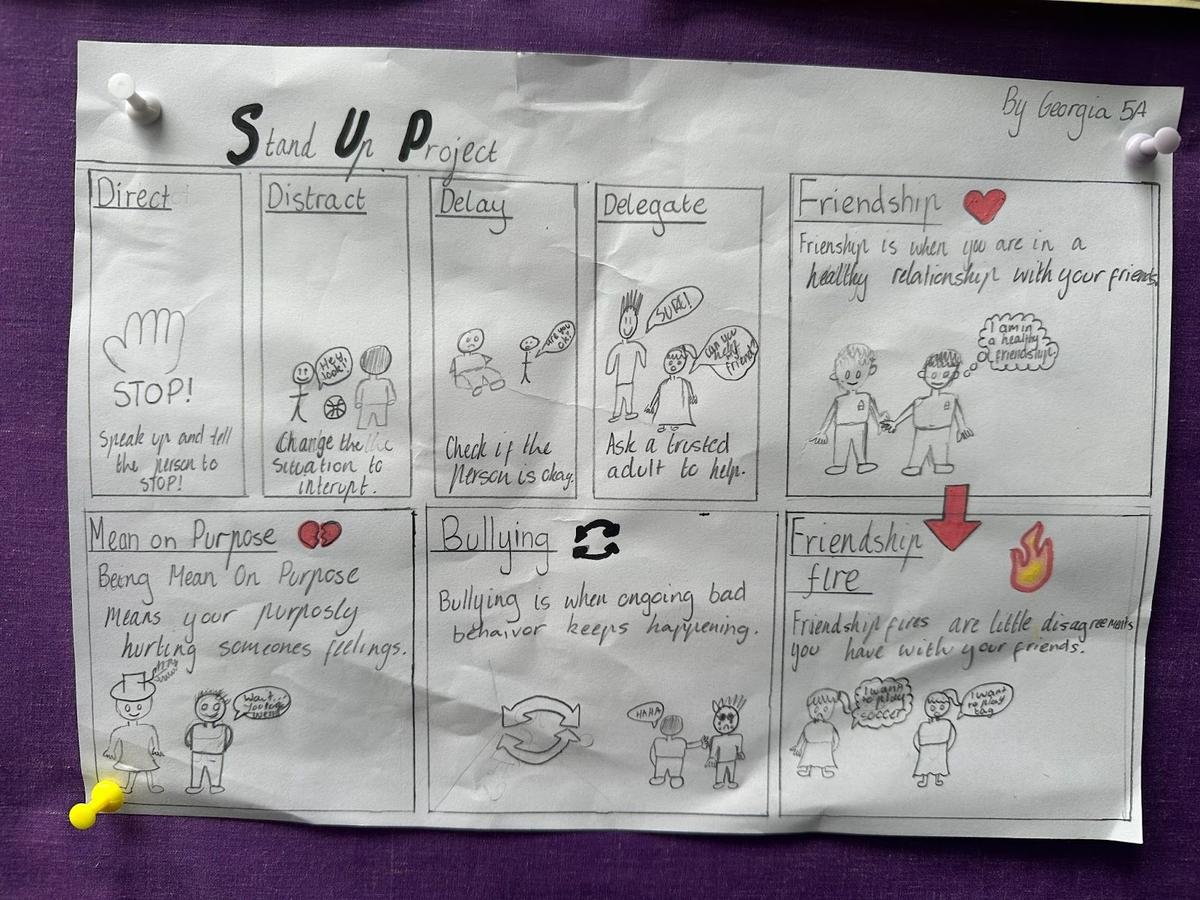 Stand Up Project
By Georgia 5A
Direct
STOP!
Speak up and tell
the person to
STOP!
Distract
Hey,
look!
Change the the
Situation to
interupt.
Delay
are you
ok?
Check if the
person is okay.
Delegate
SURE!
can you
help my
friend?
Ask a trusted
adult to help.
Friendship
Frienship is when you are in a
healthy relationship with your friends.
I am in
a healthy
friendship!
Mean on Purpose
Being Mean On Purpose
means your purposly
hurting someones feelings.
Wait...
Bullying
Bullying is when ongoing bad
behaivor keeps happening.
HAHA
Friendship
fire
Friendship fires are little disagreements
you have with your friends.
I want
to play
soccer
I want
to play
tag